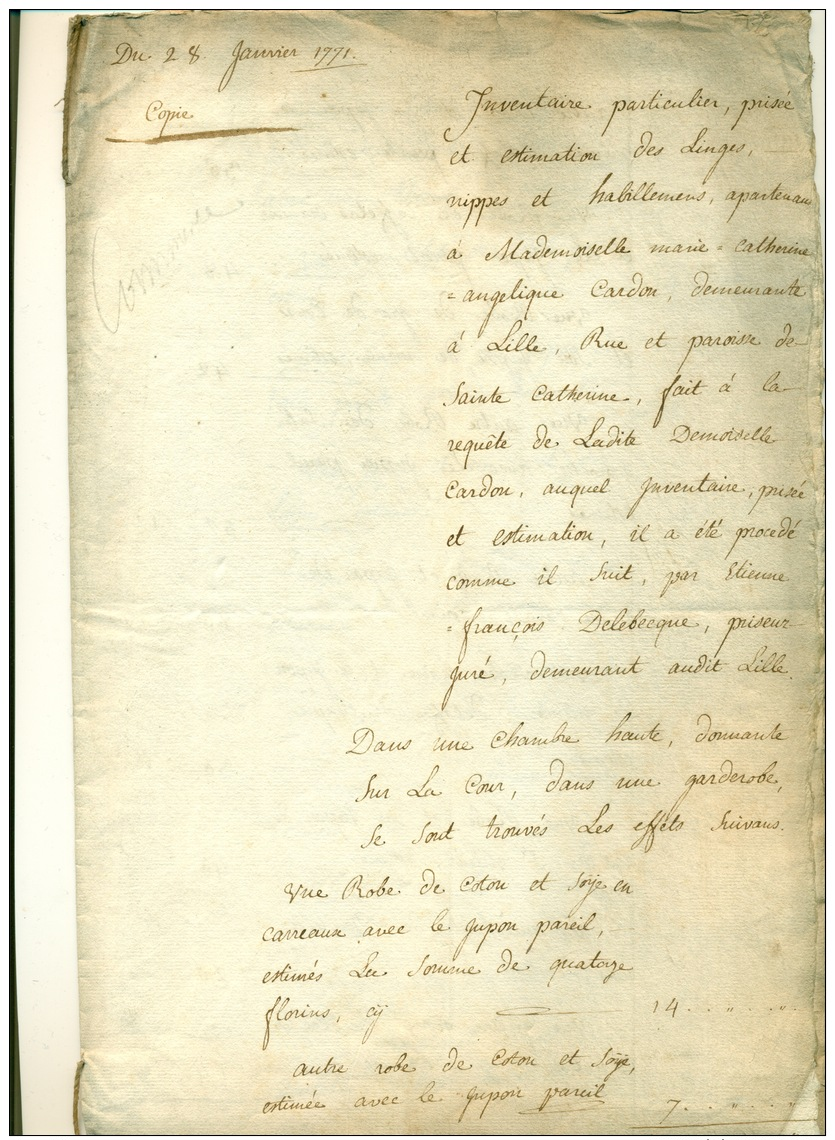 Du 28 Janvier 1771.
Copie
Inventaire particulier, prisée
et estimation des Linges,
nippes et habillemens, apartenans
à Mademoiselle marie = catherine
= angelique Cardon, demeurante
à Lille, Rue et paroisse de
Sainte Catherine, fait à la
requête de Ladite Demoiselle
Cardon, auquel Inventaire, prisée
et estimation, il a été procedé
comme il Suit, par Etienne
= françois Delebecque, priseur
juré, demeurant audit Lille.
Dans une Chambre haute, donnante
Sur La Cour, dans une garderobe,
Se Sont trouvés Les effets Suivans.
Une Robe de Coton et Soÿe en
Carreaux avec le Jupon pareil,
estimés La Somme de quatorze
florins, cÿ 14 . . " . . "
autre robe de Coton et Soÿe,
estimée avec le Jupon pareil 7 . . " . . "